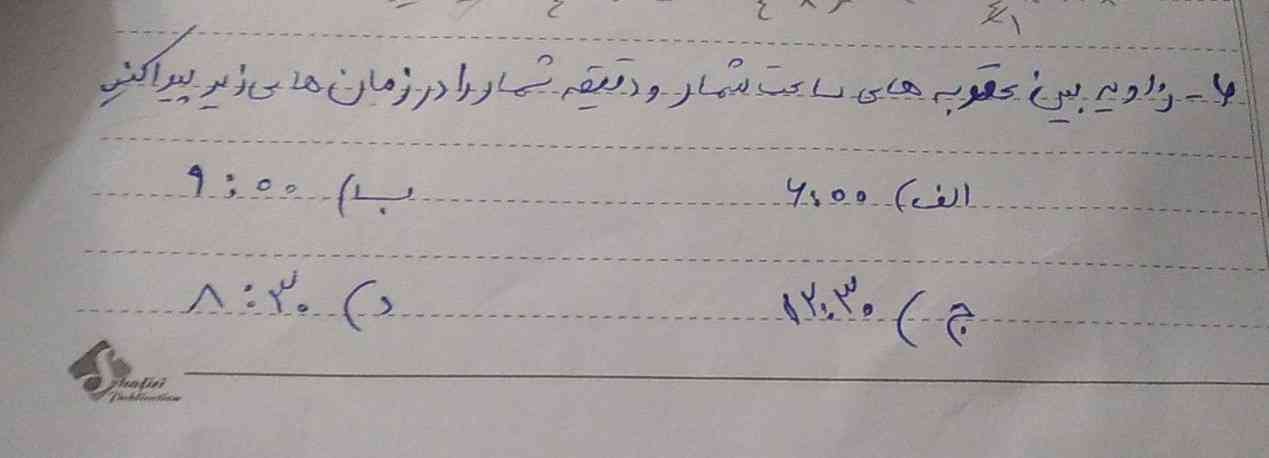 ۶- زاویه بین عقربه های ساعت شمار و دقیقه شمار را در زمان های زیر پیدا کنید
الف) ۶:۰۰ ب) ۹:۰۰
ج) ۱۲:۳۰ د) ۸:۳۰
Shafiei
Publication